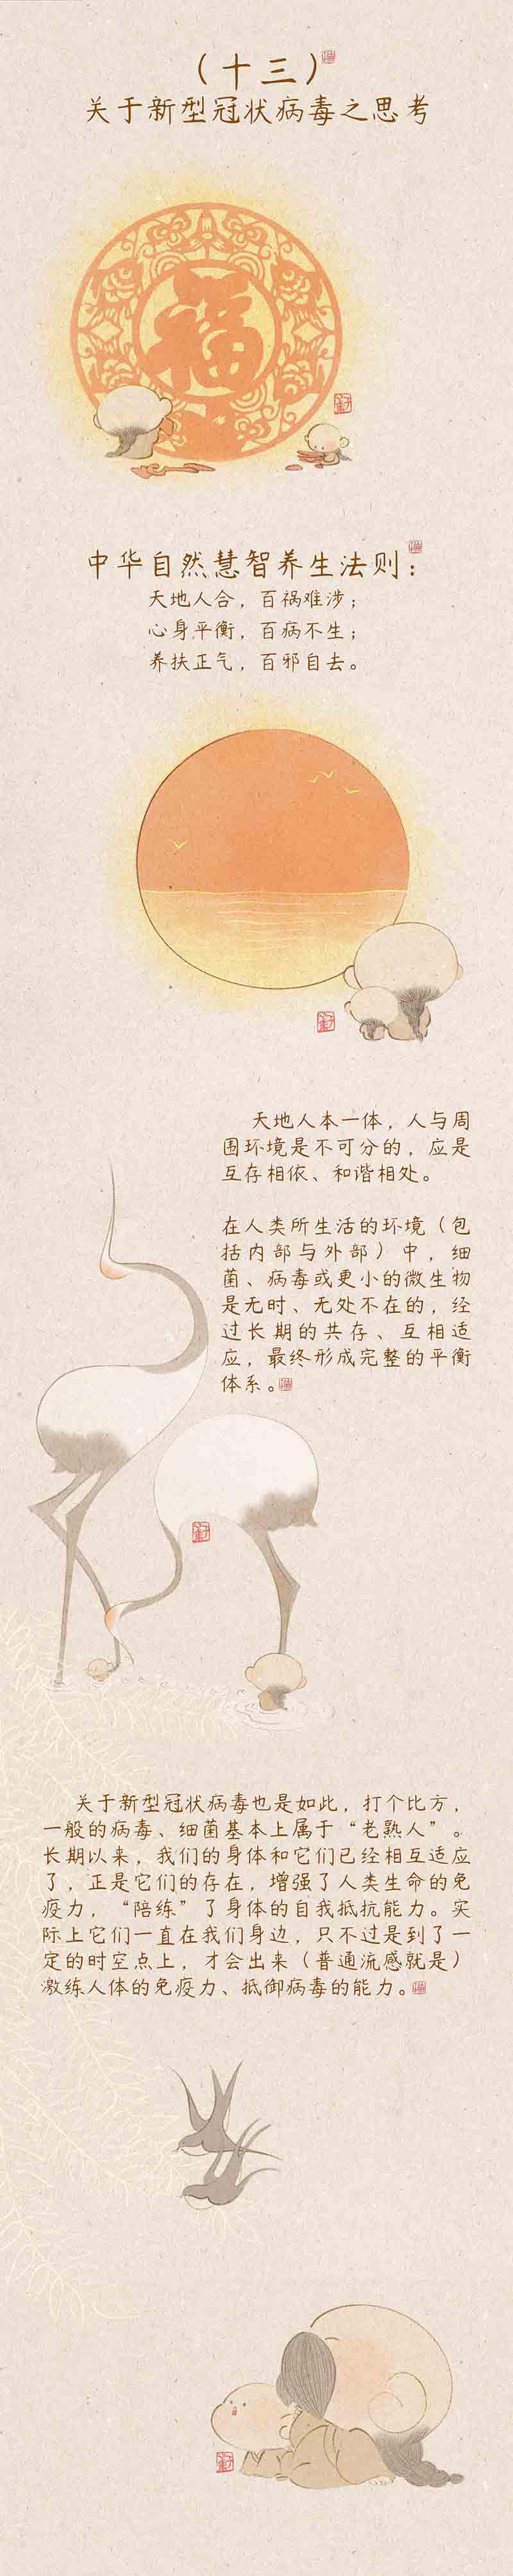 （十三）
关于新型冠状病毒之思考
福
中华自然慧智养生法则：
天地人合，百祸难涉；
心身平衡，百病不生；
养扶正气，百邪自去。
天地人本一体，人与周
围环境是不可分的，应是
互存相依、和谐相处。
在人类所生活的环境（包
括内部与外部）中，细
菌、病毒或更小的微生物
是无时、无处不在的，经
过长期的共存、互相适
应，最终形成完整的平衡
体系。
关于新型冠状病毒也是如此，打个比方，
一般的病毒、细菌基本上属于“老熟人”。
长期以来，我们的身体和它们已经相互适应
了，正是它们的存在，增强了人类生命的免
疫力，“陪练”了身体的自我抵抗能力。实
际上它们一直在我们身边，只不过是到了一
定的时空点上，才会出来（普通流感就是）
激练人体的免疫力、抵御病毒的能力。